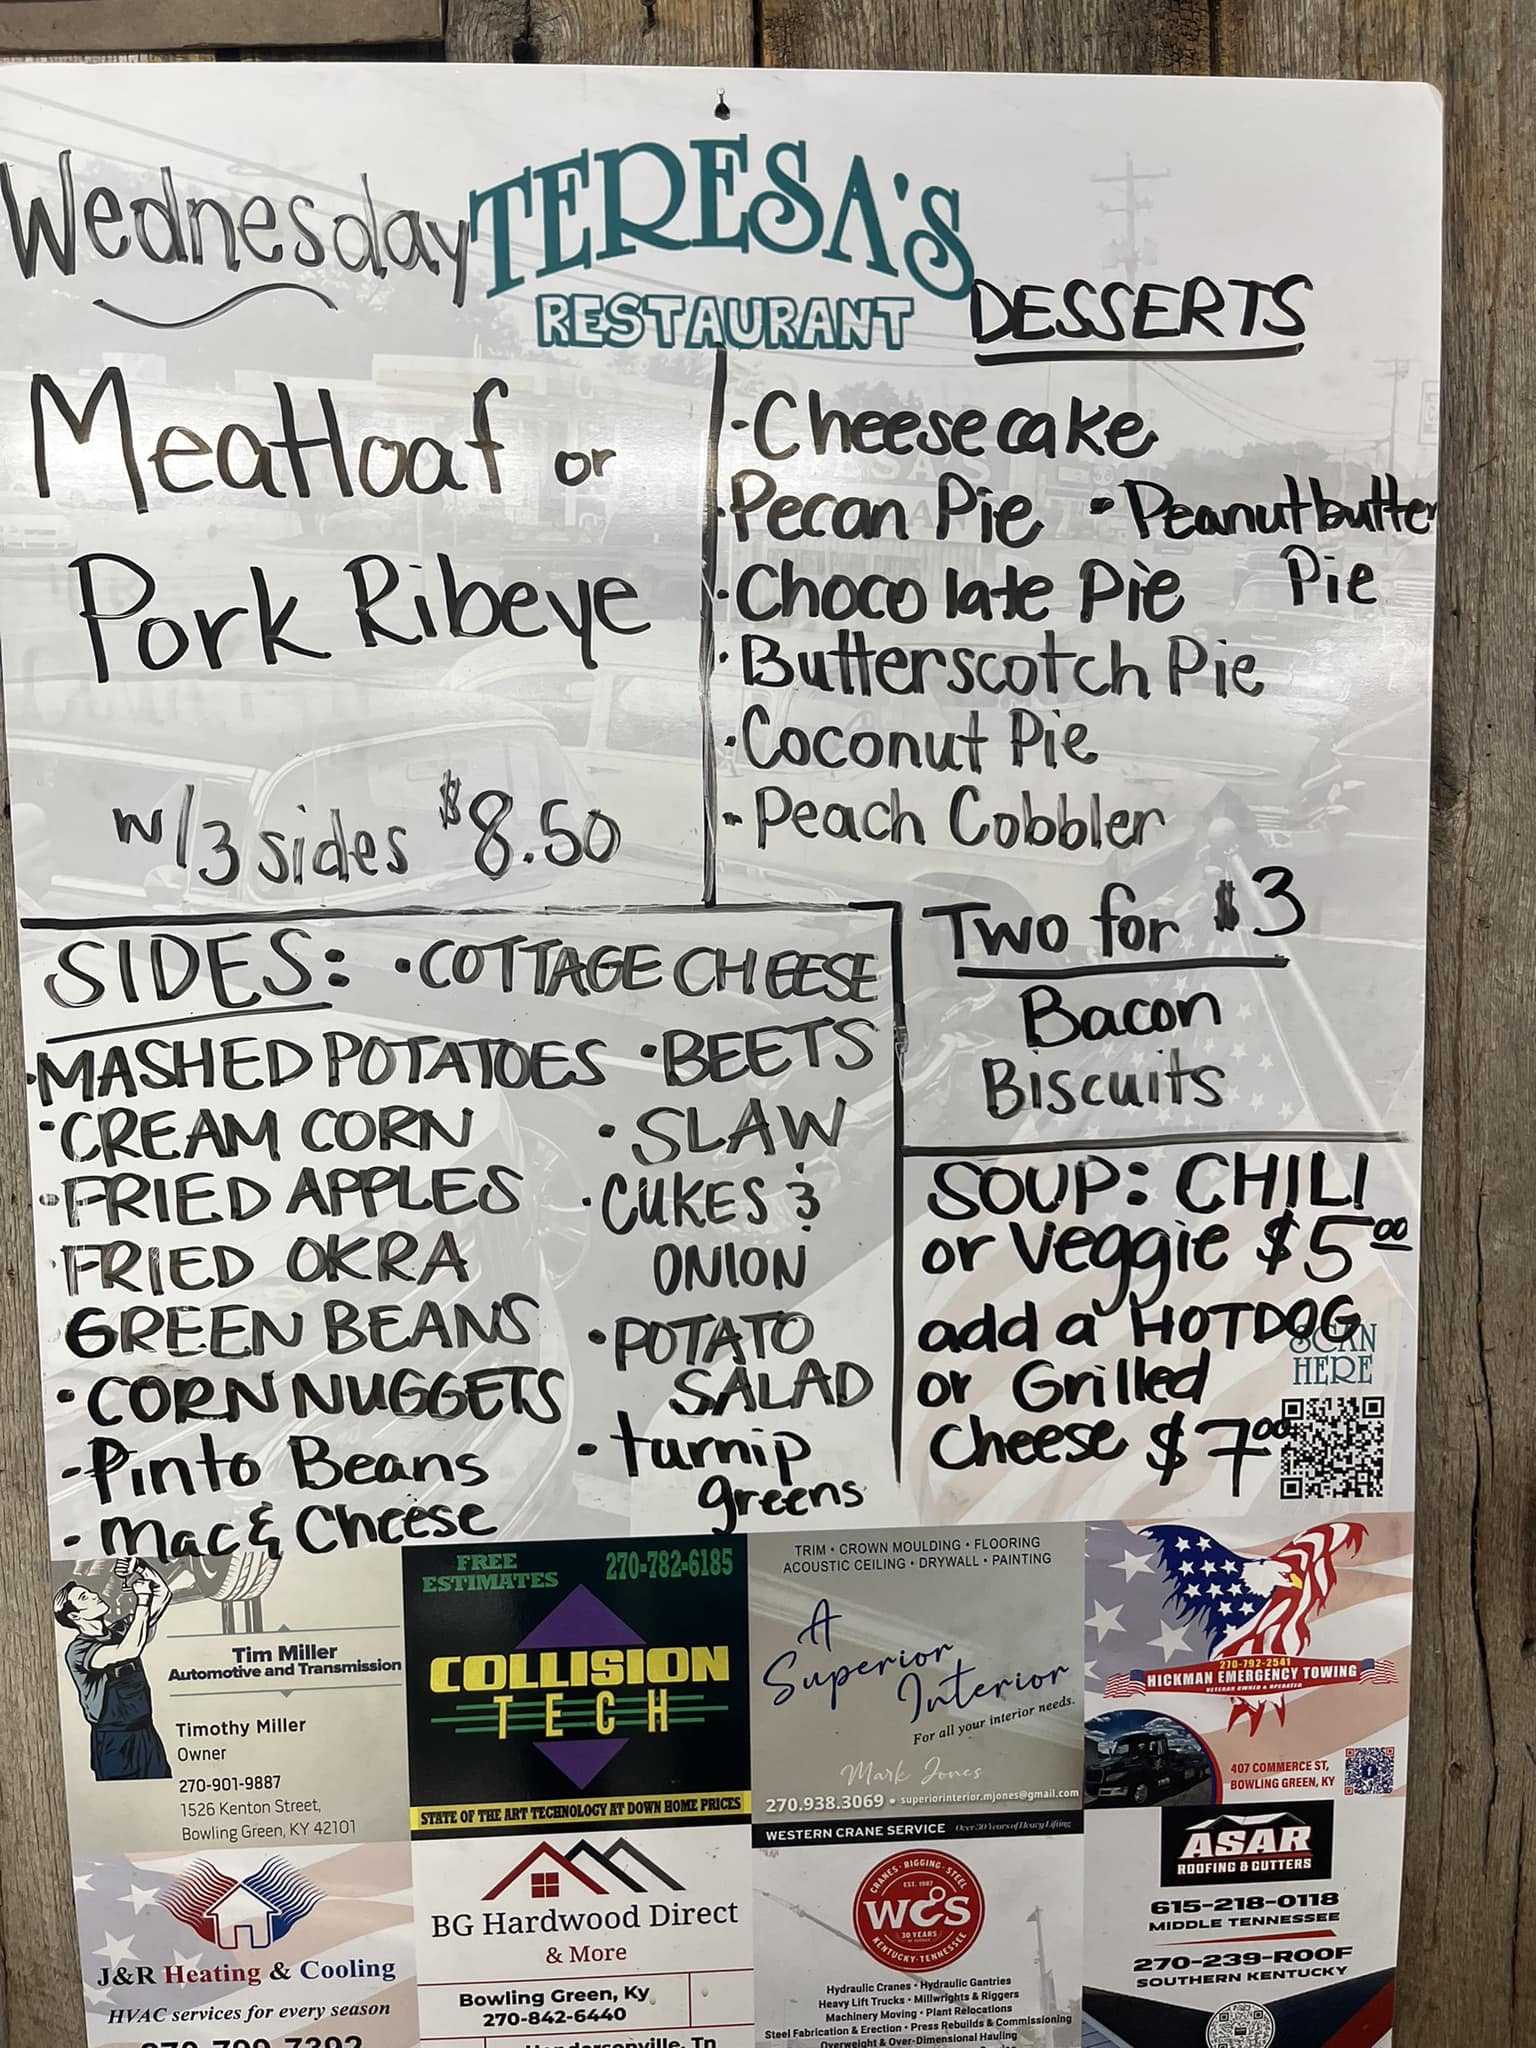 Wednesday
TERESA'S
RESTAURANT
Meatloaf or
Pork Ribeye
w/3 sides $8.50
DESSERTS
·Cheesecake
·Pecan Pie
·Peanutbutter
Pie
·Chocolate Pie
·Butterscotch Pie
·Coconut Pie
·Peach Cobbler
Two for $3
Bacon
Biscuits
SIDES:
·COTTAGE CHEESE
·MASHED POTATOES
·CREAM CORN
·FRIED APPLES
·FRIED OKRA
GREEN BEANS
·CORN NUGGETS
-Pinto Beans
·Mac & Cheese
·BEETS
·SLAW
·CUKES &
ONION
·POTATO
SALAD
·turnip
greens
SOUP: CHILI
or Veggie $5.00
add a HOTDOG
or Grilled
Cheese $7.00
SCAN
HERE
Tim Miller
Automotive and Transmission
Timothy Miller
Owner
270-901-9887
1526 Kenton Street,
Bowling Green, KY 42101
FREE
ESTIMATES
270-782-6185
COLLISION
TECH
STATE OF THE ART TECHNOLOGY AT DOWN HOME PRICES
TRIM • CROWN MOULDING • FLOORING
ACOUSTIC CEILING • DRYWALL • PAINTING
A
Superior
Interior
For all your interior needs.
Mark Jones
270.938.3069 • superiorinterior.mjones@gmail.com
270-792-2541
HICKMAN EMERGENCY TOWING
VETERAN OWNED & OPERATED
407 COMMERCE ST,
BOWLING GREEN, KY
J&R Heating & Cooling
HVAC services for every season
270-799-7392
BG Hardwood Direct
& More
Bowling Green, Ky
270-842-6440
Hendersonville, Tn
WESTERN CRANE SERVICE Over 30 Years of Heavy Lifting
CRANES · RIGGING · STEEL
EST. 1987
WCS
30 YEARS
KENTUCKY-TENNESSEE
Hydraulic Cranes • Hydraulic Gantries
Heavy Lift Trucks • Millwrights & Riggers
Machinery Moving • Plant Relocations
Steel Fabrication & Erection • Press Rebuilds & Commissioning
Overweight & Over-Dimensional Hauling
ASAR
ROOFING & GUTTERS
615-218-0118
MIDDLE TENNESSEE
270-239-ROOF
SOUTHERN KENTUCKY